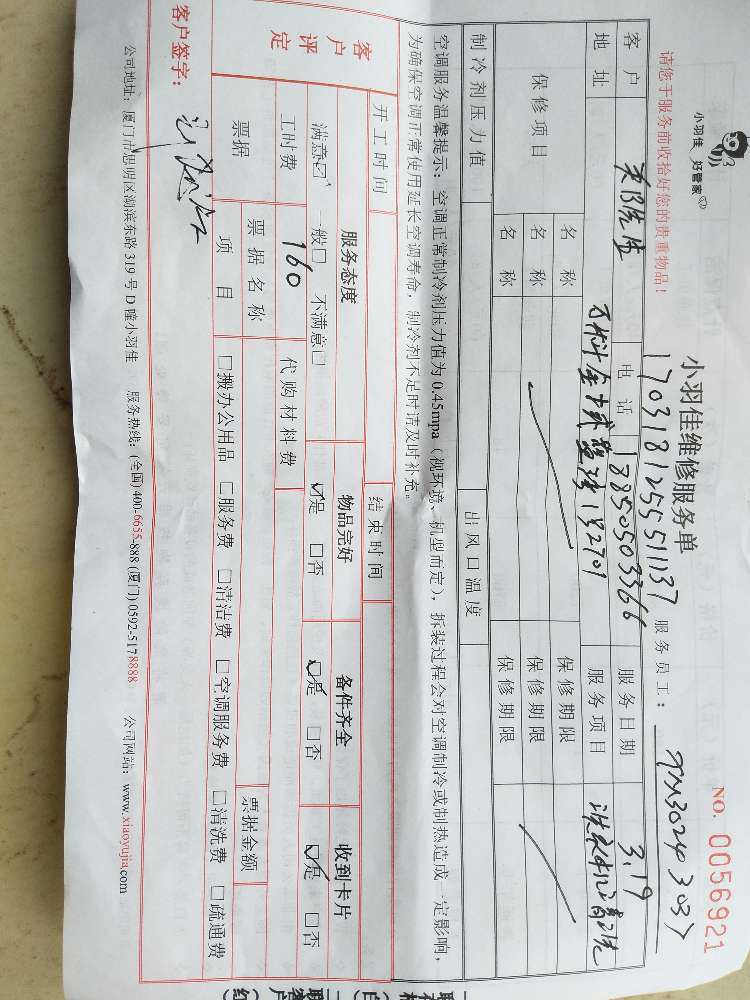 小羽佳 好管家
小羽佳维修服务单
NO. 0056921
请您于服务前收拾好您的贵重物品!
170318125551137
服务员工:
客户
电话 18850503366
服务日期 3.19
地址
服务项目
保修项目
名称
保修期限
名称
保修期限
名称
保修期限
制冷剂压力值
出风口温度
空调服务温馨提示:空调正常制冷剂压力值为0.45mpa(视环境、机型而定),拆装过程会对空调制冷或制热造成一定影响,
为确保空调正常使用延长空调寿命,制冷剂不足时请及时补充。
开工时间
结束时间
客户评定
服务态度 物品完好 备件齐全 收到卡片
满意☑ 一般□ 不满意□ ☑是 □否 ☑是 □否 ☑是 □否
工时费 160 代购材料费
票据 票据名称 票据金额
项目 □搬办公用品 □服务费 □清洁费 □空调服务费 □清洗费 □疏通费
客户签字:
公司地址:厦门市思明区湖滨东路319号D幢小羽佳 服务热线:(全国)400-6655-888 (厦门)0592-5178888 公司网站:www.xiaoyujia.com